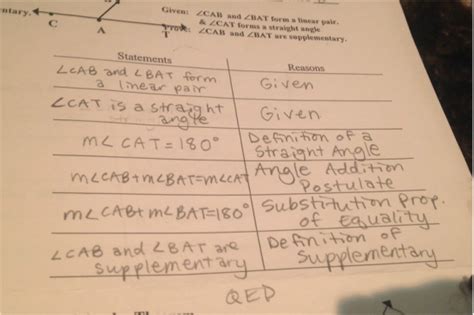 ntary.
C
A
T
Given: ∠CAB and ∠BAT form a linear pair.
& ∠CAT forms a straight angle
Prove: ∠CAB and ∠BAT are supplementary.
Statements
Reasons
∠CAB and ∠BAT form
a linear pair
Given
∠CAT is a straight
angle
Given
m∠CAT=180°
Definition of a
Straight Angle
m∠CAB+m∠BAT=m∠CAT
Angle Addition
Postulate
m∠CAB+m∠BAT=180°
Substitution Prop.
of equality
∠CAB and ∠BAT are
supplementary
Definition of
supplementary
QED